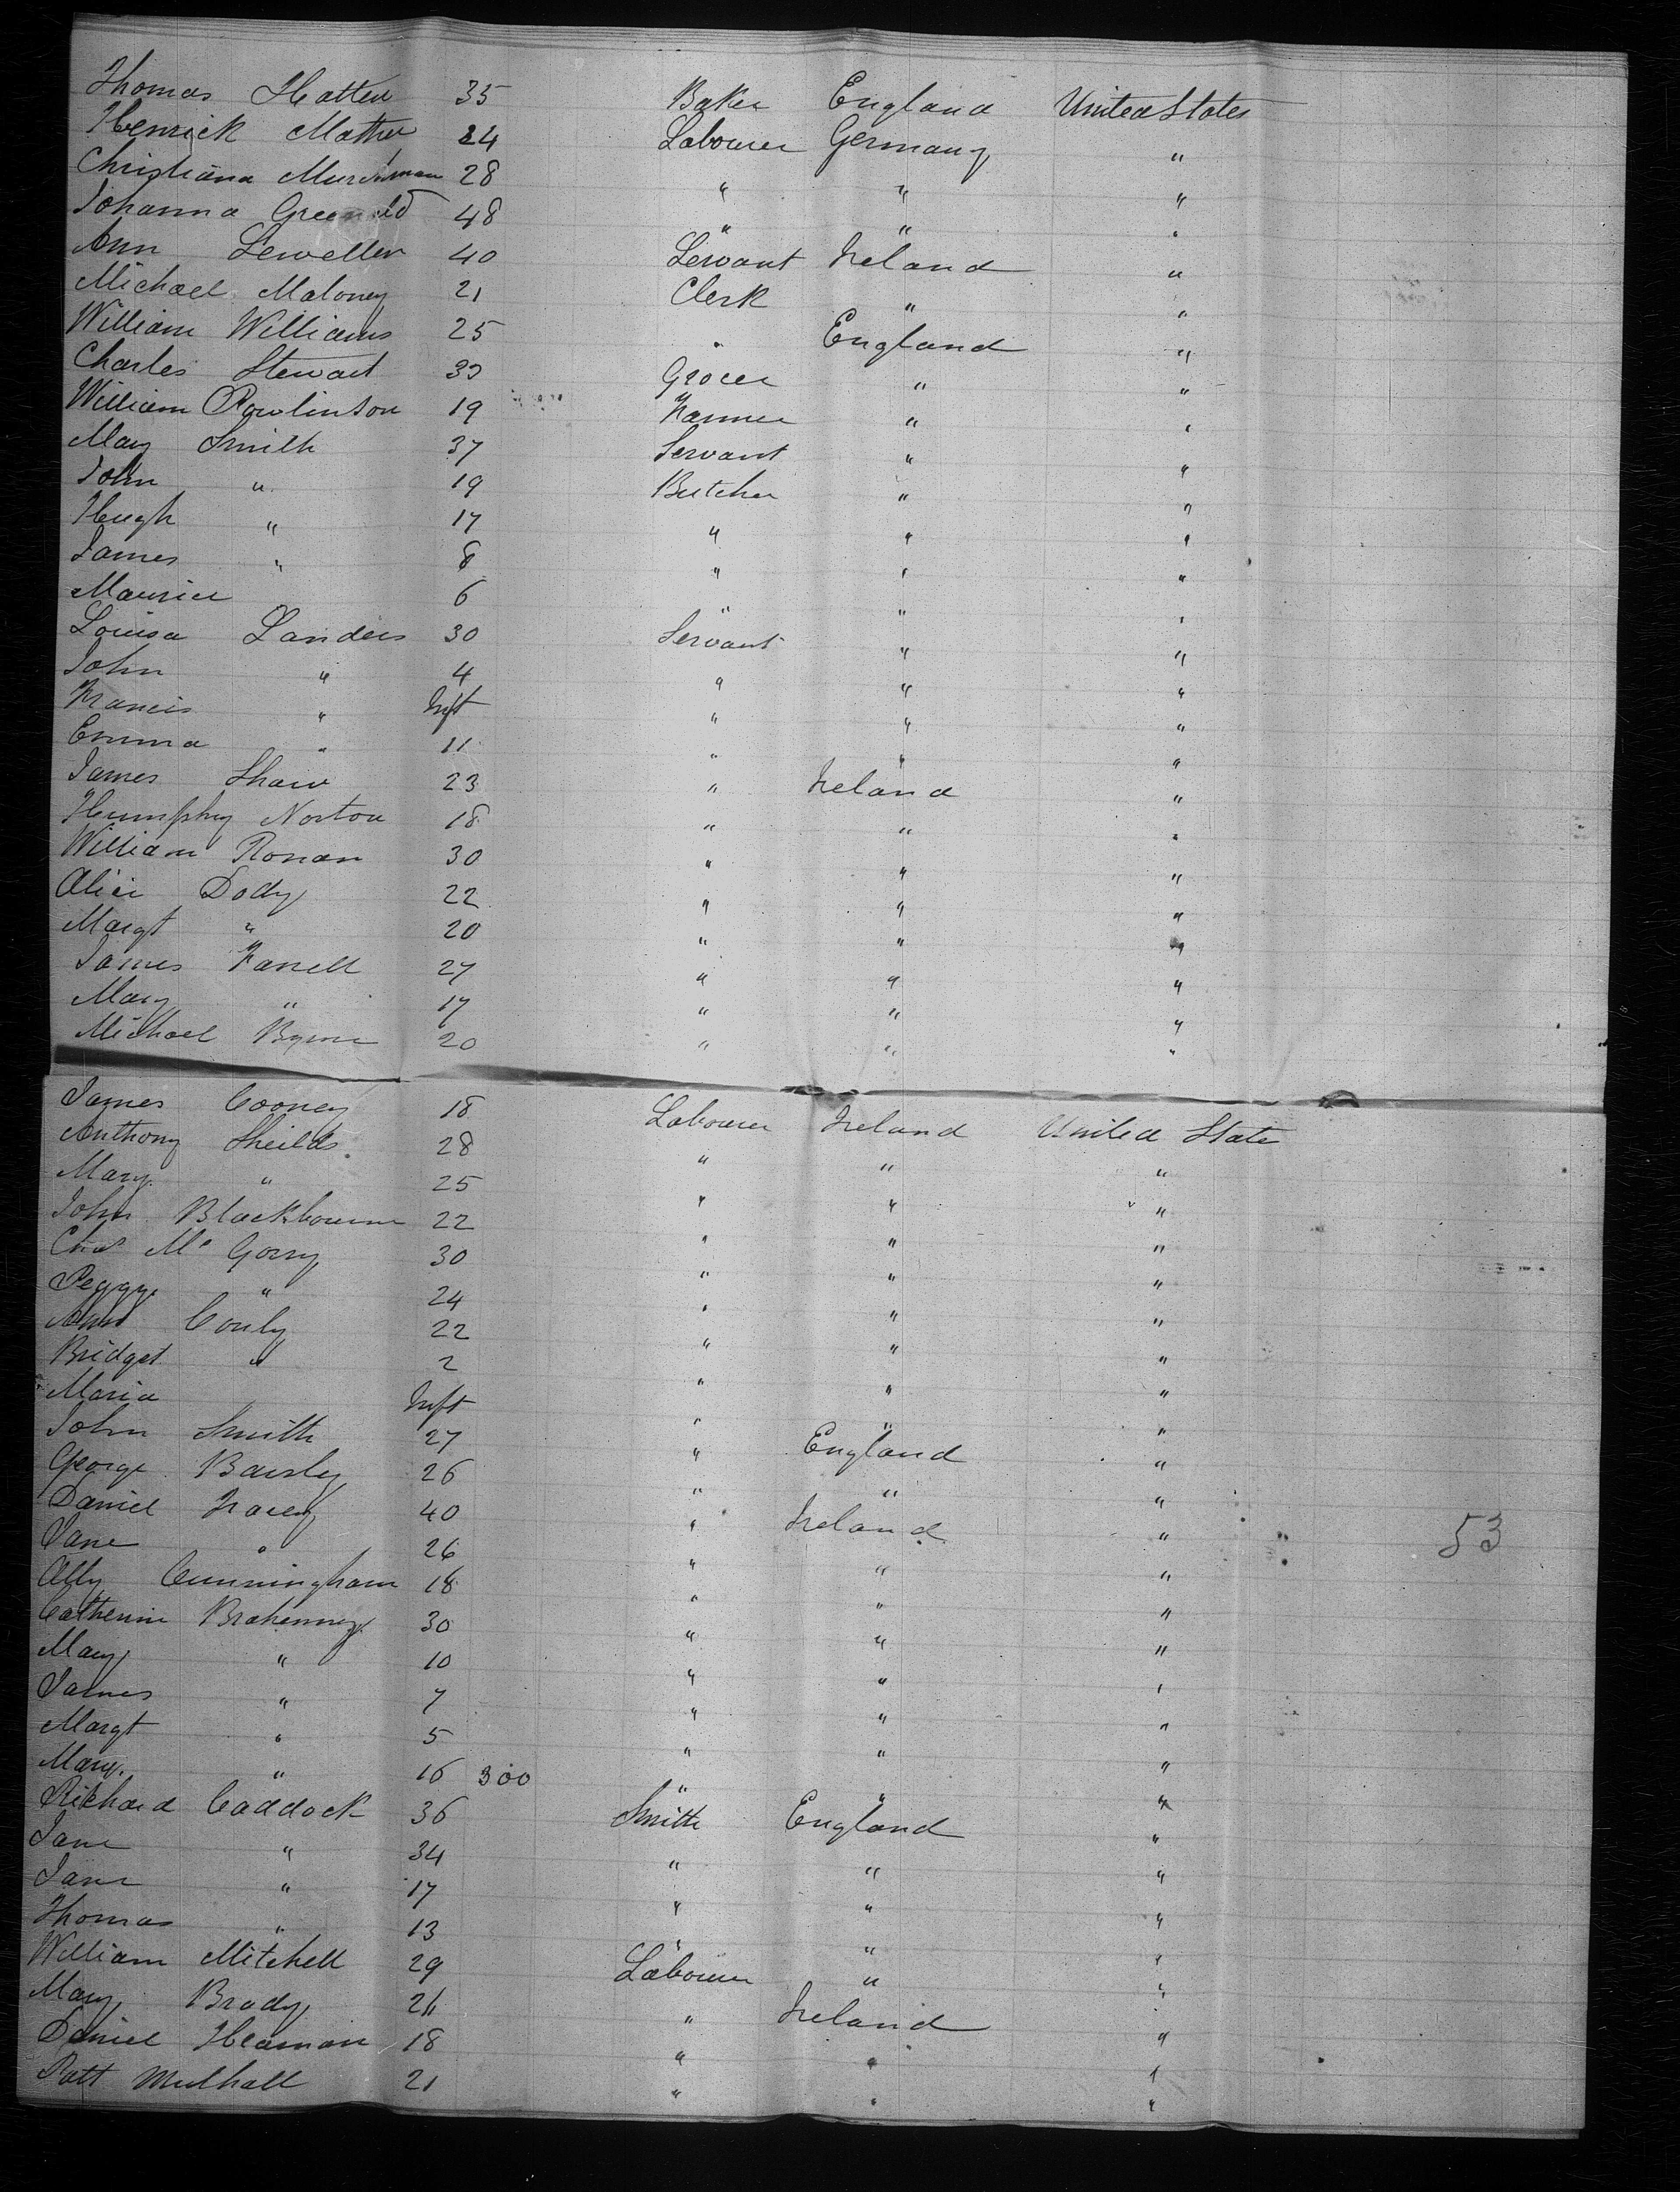 Thomas Hatten 35 Baker England United States
Henrick Mather 24 Labourer Germany "
Christiana 28 " " "
Johanna 48 " " "
Ann Lewellen 40 Servant Ireland "
Michael Maloney 21 Clerk " "
William Williams 25 " England "
Charles Stewart 30 Grocer " "
William Rowlinson 19 Farmer " "
Mary Smith 37 Servant " "
John " 19 Butcher " "
Hugh " 17 " " "
James " 8 " " "
Maurice 6 " " "
Louisa Landers 30 Servant " "
John " 4 " " "
Francis " Inft " " "
Emma " 11 " " "
James Shaw 23 " Ireland "
Humphry Norton 18 " " "
William Ronan 30 " " "
Alice Dody 22 " " "
Margt " 20 " " "
James Farrell 27 " " "
Mary " 17 " " "
Michael Byrne 20 " " "
James Cooney 18 Labourer Ireland United State
Anthony Sheilds 28 " " "
Mary " 25 " " "
John Blackbourne 22 " " "
Chas Mc Gorry 30 " " "
Peggy " 24 " " "
Ann Conly 22 " " "
Bridget " 2 " " "
Maria Inft " " "
John Smith 27 " England "
George Barsley 26 " " "
Daniel Tracey 40 " Ireland "
53
Jane " 26 " " "
Ally Cunningham 18 " " "
Catherine Brahenney 30 " " "
Mary " 10 " " "
James " 7 " " "
Margt " 5 " " "
Mary " 16 300 " " "
Richard Caddock 36 Smith England "
Jane " 34 " " "
Jane " 17 " " "
Thomas " 13 " " "
William Mitchell 29 Labourer " "
Mary Brady 24 " Ireland "
Daniel Heaman 18 " " "
Patt Mulhall 21 " " "